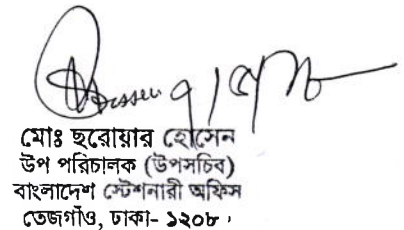 মোঃ ছরোয়ার হোসেন
উপ পরিচালক (উপসচিব)
বাংলাদেশ স্টেশনারী অফিস
তেজগাঁও, ঢাকা- ১২০৮।